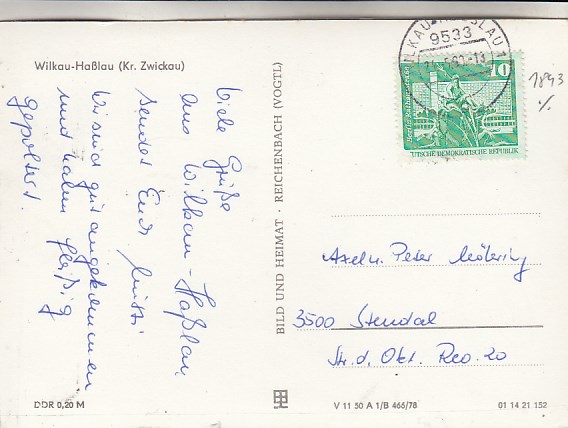 Wilkau-Haßlau (Kr. Zwickau)
Viele Grüße
aus Wilkau-Haßlau
sendet Euch
Wir sind gut angekommen
und haben fleißig
gepoltert.
BILD UND HEIMAT · REICHENBACH (VOGTL)
WILKAU-HASSLAU 1
9533
10
DEUTSCHE DEMOKRATISCHE REPUBLIK
1893
Axel u. Peter Möbring
3500 Stendal
Str. d. Okt. Rev. 20
DDR 0,20 M
V 11 50 A 1/B 466/78
01 14 21 152